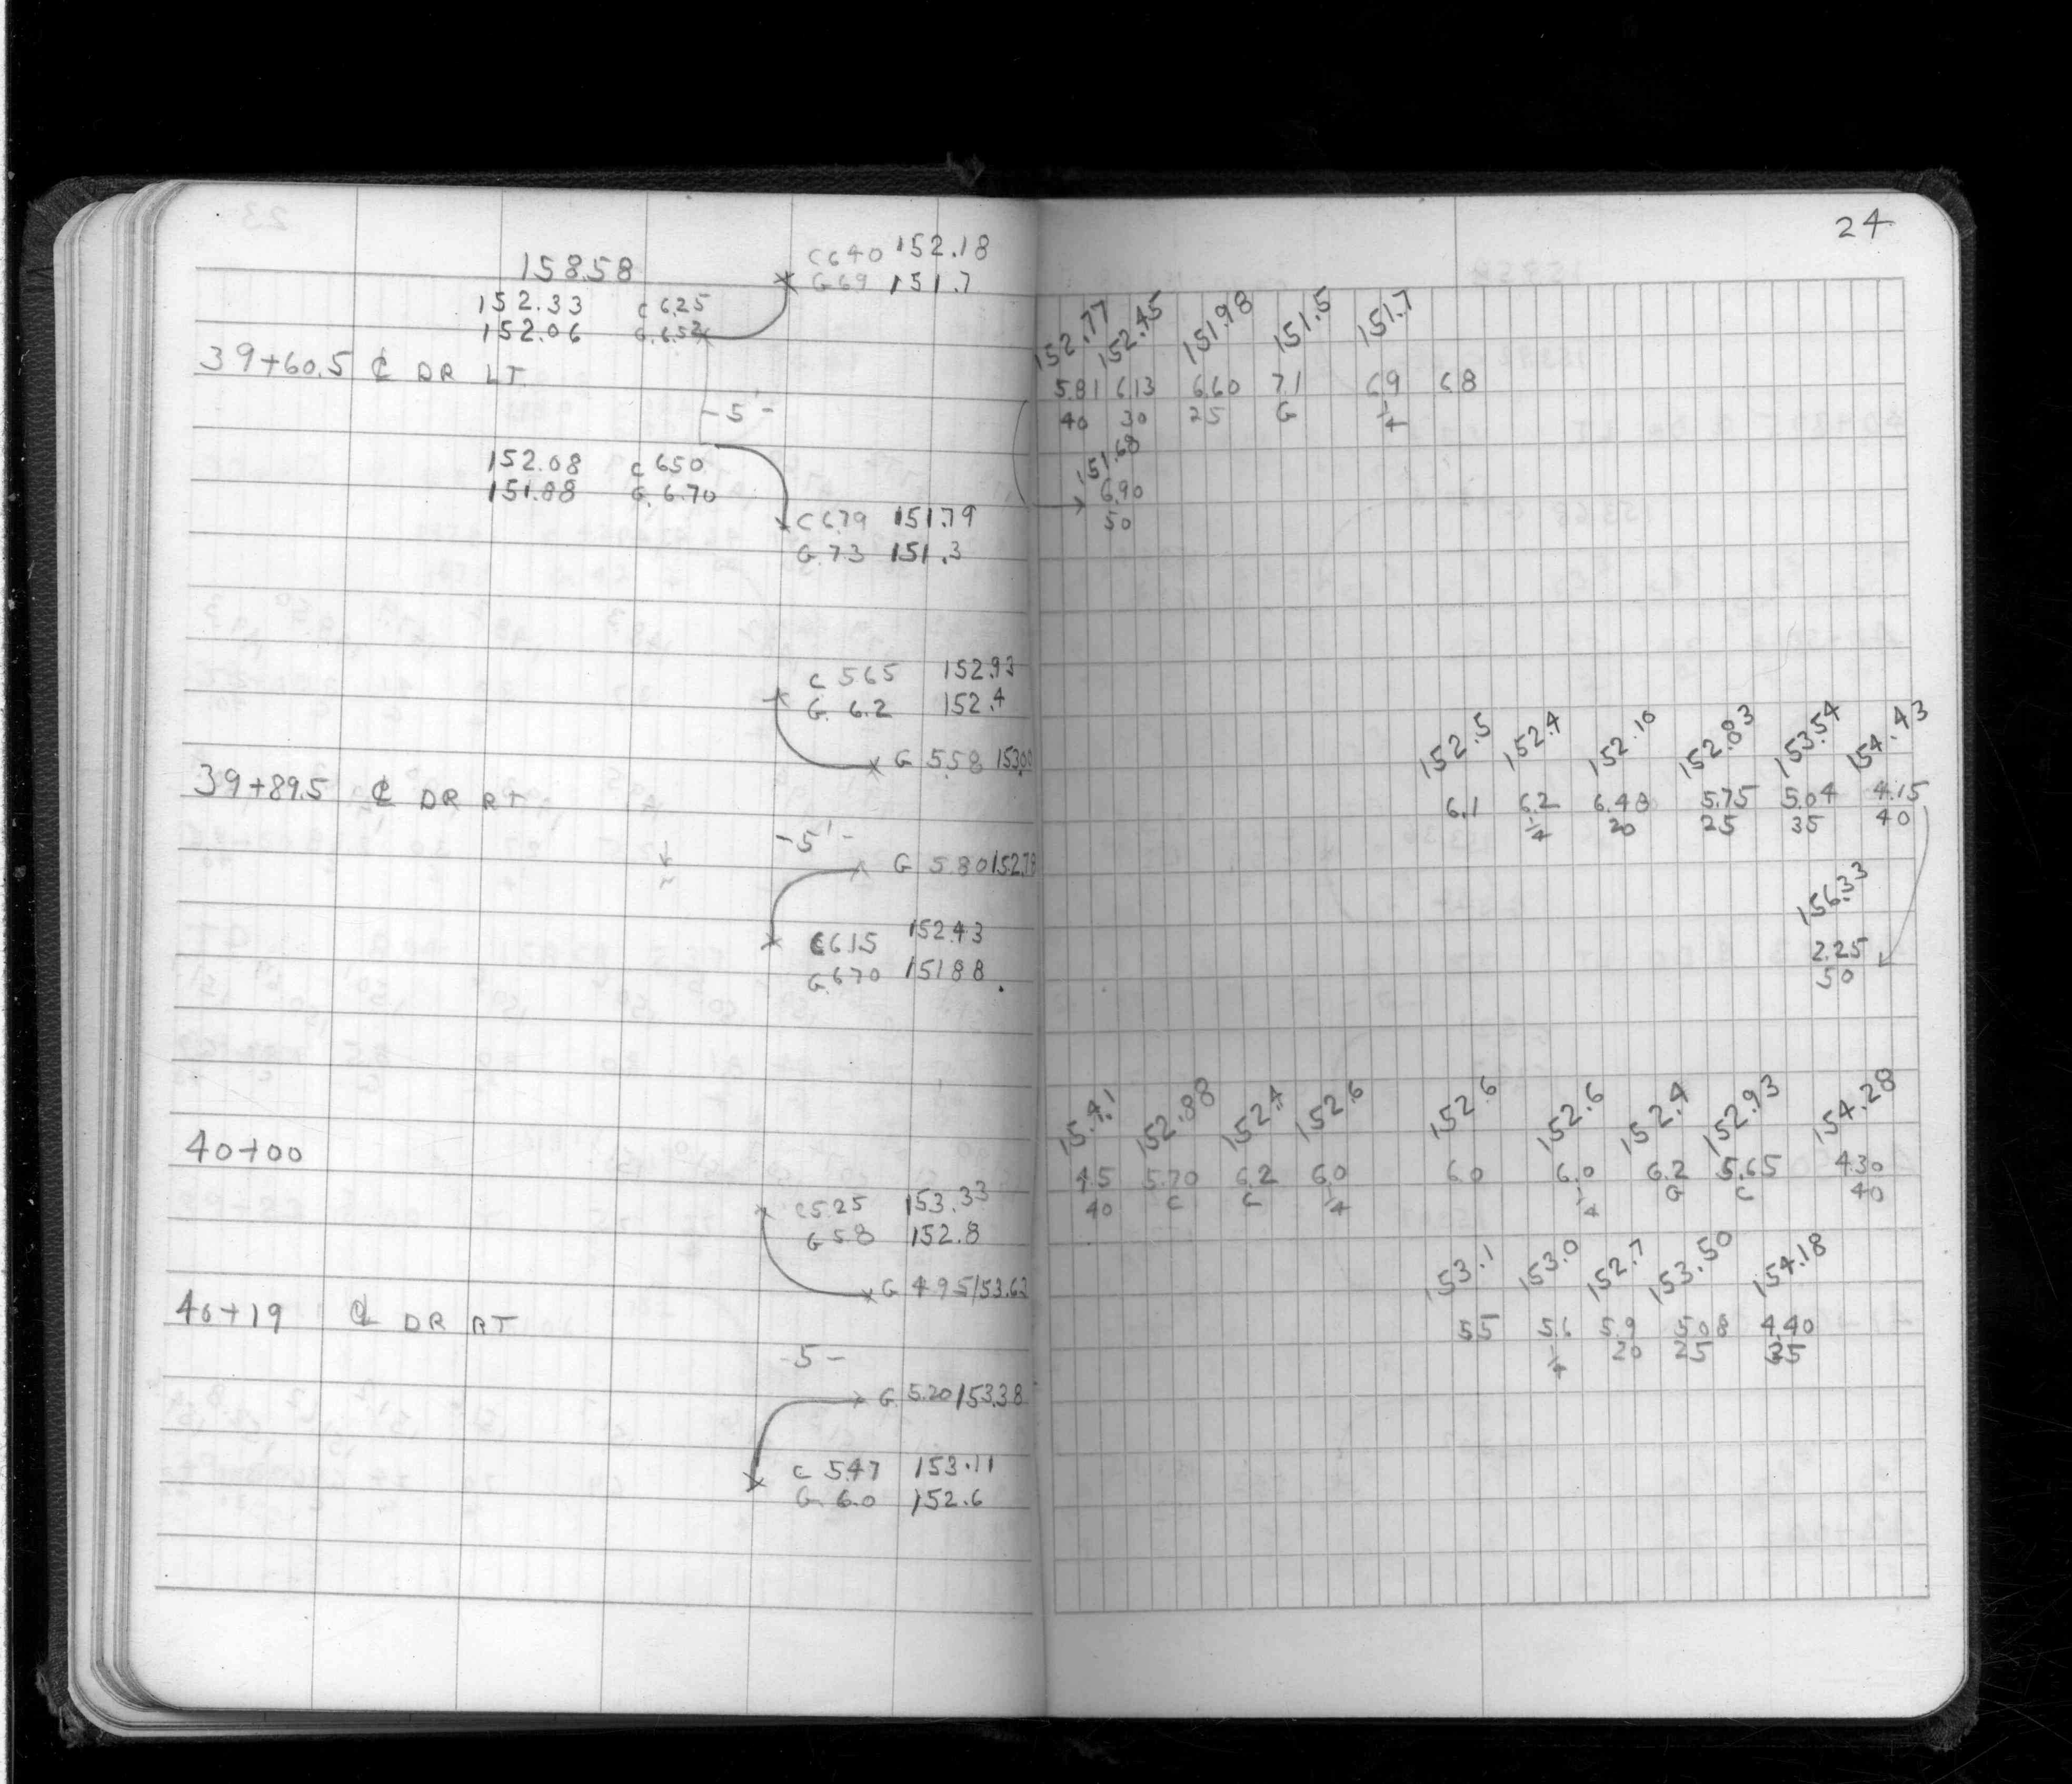 24
158.58
C 640 152.18
G 69 151.7
152.33 C 6.25
152.06 G. 6.52
39+60.5 ℄ DR LT
-5'-
152.08 C 650
151.88 G. 6.70
C 6.79 151.79
G. 73 151.3
152.77 152.45 151.98 151.5 151.7
5.81 6.13 6.60 7.1 69 68
40 30 25 G 1/4
151.68
6.90
50
C 565 152.93
G. 6.2 152.4
G 5.58 153.00
39+89.5 ℄ DR RT
-5'-
G 5.80 152.78
C 6.15 152.43
G. 670 151 88
152.5 152.4 152.10 152.83 153.54 154.43
6.1 6.2 6.48 5.75 5.04 4.15
1/4 20 25 35 40
156.33
2.25
50
40+00
154.1 152.88 152.4 152.6 152.6 152.6 152.4 152.93 154.28
4.5 5.70 6.2 6.0 6.0 6.0 6.2 5.65 4.30
40 C G 1/4 1/4 G C 40
C 5.25 153.33
G 5.8 152.8
G 4.95 153.63
40+19 ℄ DR RT
-5-
G. 5.20 153.38
C 5.47 153.11
G. 6.0 152.6
153.1 153.0 152.7 153.50 154.18
5.5 5.6 5.9 5.08 4.40
1/4 20 25 35